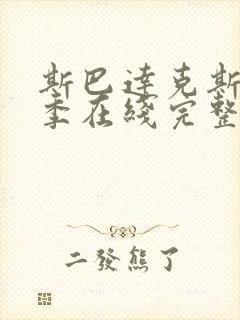 斯巴達克斯
季在綫完整
二發熊了